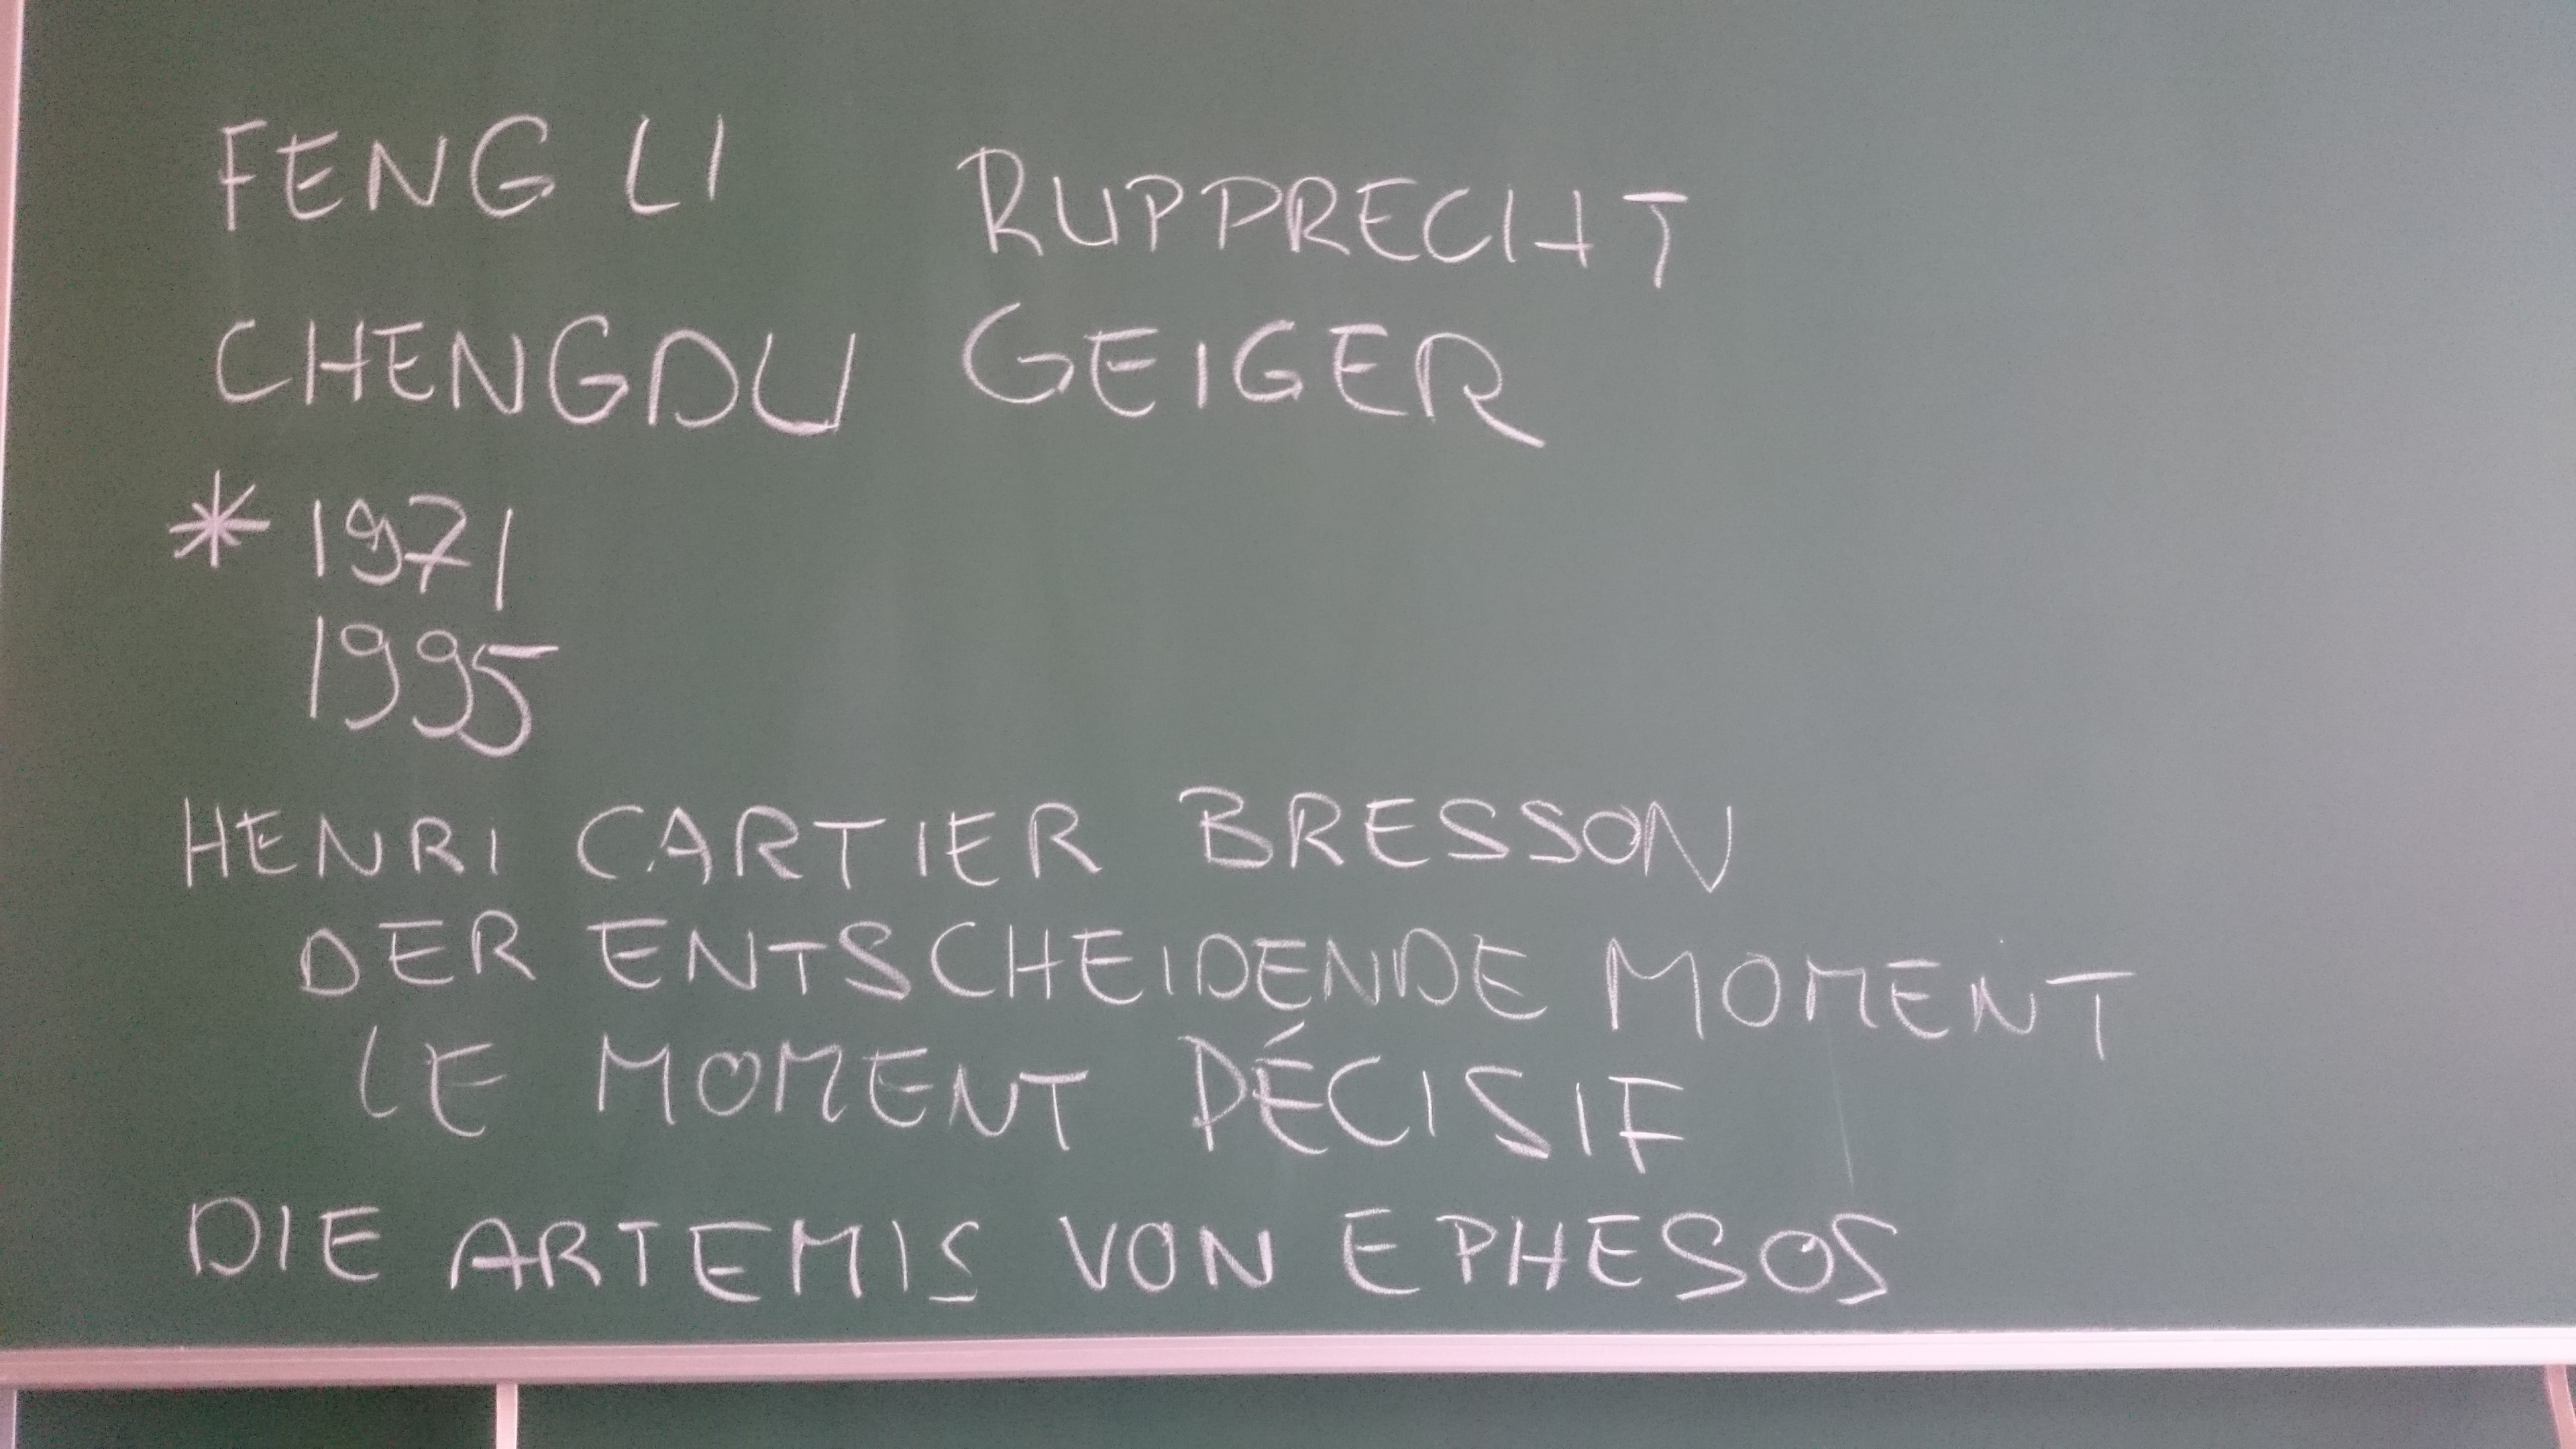 FENG LI
CHENGDU
* 1971
1995
RUPPRECHT
GEIGER
HENRI CARTIER BRESSON
DER ENTSCHEIDENDE MOMENT
LE MOMENT DÉCISIF
DIE ARTEMIS VON EPHESOS